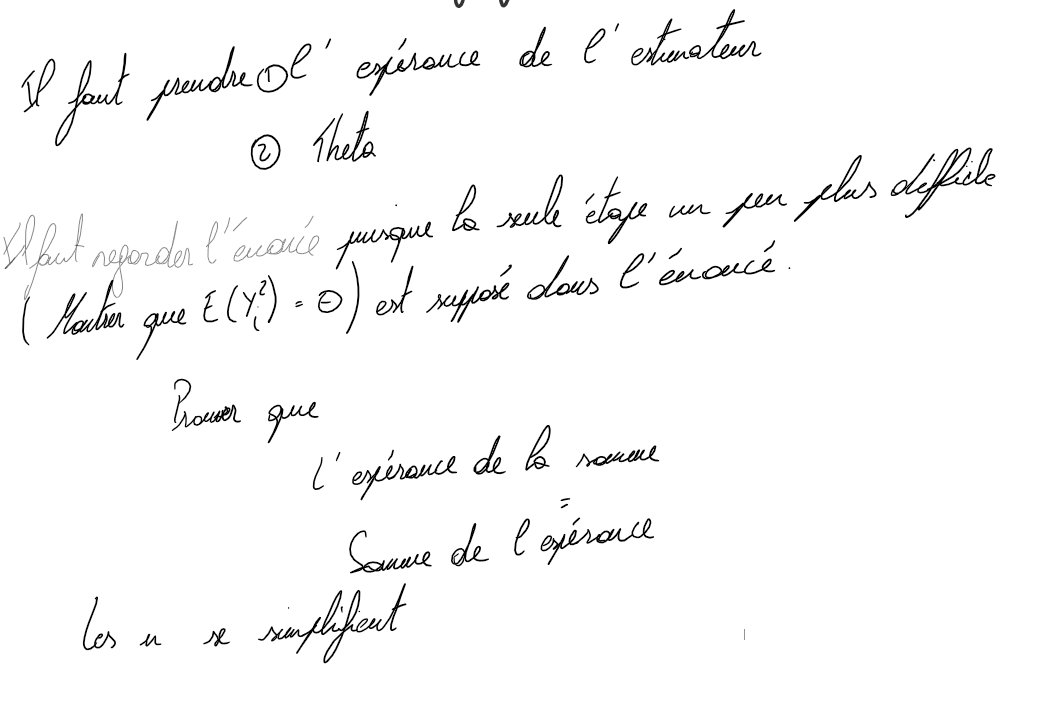 Il faut prendre ① l' espérance de l' estimateur
② Theta
Il faut regarder l'énoncé puisque la seule étape un peu plus difficile
( Montrer que E(Y_i^2) = Θ ) est supposé dans l'énoncé.
Prouver que
L' espérance de la somme
=
Somme de l espérance
les n se simplifient